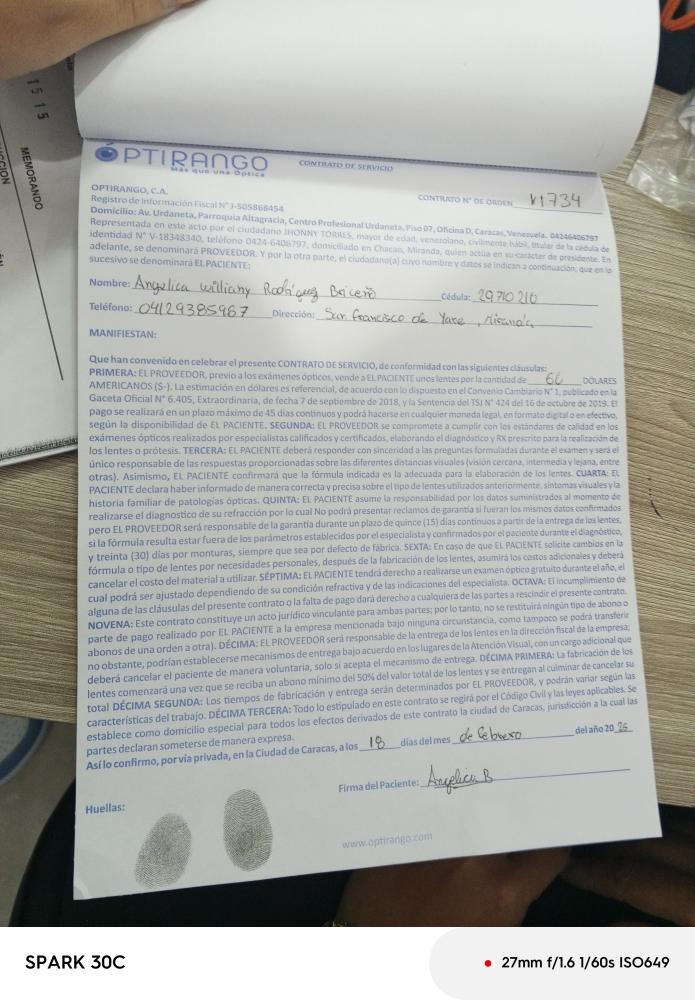 1515
MEMORANDO
OPTIRANGO
Más que una Óptica
CONTRATO DE SERVICIO
OPTIRANGO, C.A.
CONTRATO N° DE ORDEN V1734
Registro de Información Fiscal N° J-505868454
Domicilio: Av. Urdaneta, Parroquia Altagracia, Centro Profesional Urdaneta, Piso 07, Oficina D, Caracas, Venezuela. 04246406797
Representada en este acto por el ciudadano JHONNY TORRES, mayor de edad, venezolano, civilmente hábil, titular de la cédula de
identidad N° V-18348340, teléfono 0424-6406797, domiciliado en Chacao, Miranda, quien actúa en su carácter de presidente. En
adelante, se denominará PROVEEDOR. Y por la otra parte, el ciudadano(a) cuyo nombre y datos se indican a continuación, que en lo
sucesivo se denominará EL PACIENTE:
Nombre: Angelica williany Rodriguez Briceño Cédula: 29710210
Teléfono: 04129385967 Dirección: San Francisco de Yare, Miranda
MANIFIESTAN:
Que han convenido en celebrar el presente CONTRATO DE SERVICIO, de conformidad con las siguientes cláusulas:
PRIMERA: EL PROVEEDOR, previo a los exámenes ópticos, vende a EL PACIENTE unos lentes por la cantidad de DÓLARES
AMERICANOS ($-). La estimación en dólares es referencial, de acuerdo con lo dispuesto en el Convenio Cambiario N° 1, publicado en la
Gaceta Oficial N° 6.405, Extraordinaria, de fecha 7 de septiembre de 2018, y la Sentencia del TSJ N° 424 del 16 de octubre de 2019. El
pago se realizará en un plazo máximo de 45 días continuos y podrá hacerse en cualquier moneda legal, en formato digital o en efectivo,
según la disponibilidad de EL PACIENTE. SEGUNDA: EL PROVEEDOR se compromete a cumplir con los estándares de calidad en los
exámenes ópticos realizados por especialistas calificados y certificados, elaborando el diagnóstico y RX prescrito para la realización de
los lentes o prótesis. TERCERA: EL PACIENTE deberá responder con sinceridad a las preguntas formuladas durante el examen y será el
único responsable de las respuestas proporcionadas sobre las diferentes distancias visuales (visión cercana, intermedia y lejana, entre
otras). Asimismo, EL PACIENTE confirmará que la fórmula indicada es la adecuada para la elaboración de los lentes. CUARTA: EL
PACIENTE declara haber informado de manera correcta y precisa sobre el tipo de lentes utilizados anteriormente, síntomas visuales y la
historia familiar de patologías ópticas. QUINTA: EL PACIENTE asume la responsabilidad por los datos suministrados al momento de
realizarse el diagnostico de su refracción por lo cual No podrá presentar reclamos de garantía si fueran los mismos datos confirmados
pero EL PROVEEDOR será responsable de la garantía durante un plazo de quince (15) días continuos a partir de la entrega de los lentes,
si la fórmula resulta estar fuera de los parámetros establecidos por el especialista y confirmados por el paciente durante el diagnóstico,
y treinta (30) días por monturas, siempre que sea por defecto de fábrica. SEXTA: En caso de que EL PACIENTE solicite cambios en la
fórmula o tipo de lentes por necesidades personales, después de la fabricación de los lentes, asumirá los costos adicionales y deberá
cancelar el costo del material a utilizar. SÉPTIMA: EL PACIENTE tendrá derecho a realizarse un examen óptico gratuito durante el año, el
cual podrá ser ajustado dependiendo de su condición refractiva y de las indicaciones del especialista. OCTAVA: El incumplimiento de
alguna de las cláusulas del presente contrato o la falta de pago dará derecho a cualquiera de las partes a rescindir el presente contrato.
NOVENA: Este contrato constituye un acto jurídico vinculante para ambas partes; por lo tanto, no se restituirá ningún tipo de abono o
parte de pago realizado por EL PACIENTE a la empresa mencionada bajo ninguna circunstancia, como tampoco se podrá transferir
abonos de una orden a otra). DÉCIMA: EL PROVEEDOR será responsable de la entrega de los lentes en la dirección fiscal de la empresa;
no obstante, podrían establecerse mecanismos de entrega bajo acuerdo en los lugares de la Atención Visual, con un cargo adicional que
deberá cancelar el paciente de manera voluntaria, solo si acepta el mecanismo de entrega. DÉCIMA PRIMERA: La fabricación de los
lentes comenzará una vez que se reciba un abono mínimo del 50% del valor total de los lentes y se entregan al culminar de cancelar su
total DÉCIMA SEGUNDA: Los tiempos de fabricación y entrega serán determinados por EL PROVEEDOR, y podrán variar según las
características del trabajo. DÉCIMA TERCERA: Todo lo estipulado en este contrato se regirá por el Código Civil y las leyes aplicables. Se
establece como domicilio especial para todos los efectos derivados de este contrato la ciudad de Caracas, jurisdicción a la cual las
partes declaran someterse de manera expresa.
Así lo confirmo, por vía privada, en la Ciudad de Caracas, a los 18 días del mes de febrero del año 20 25
Firma del Paciente: Angelica B
Huellas:
www.optirango.com
SPARK 30C
27mm f/1.6 1/60s ISO649